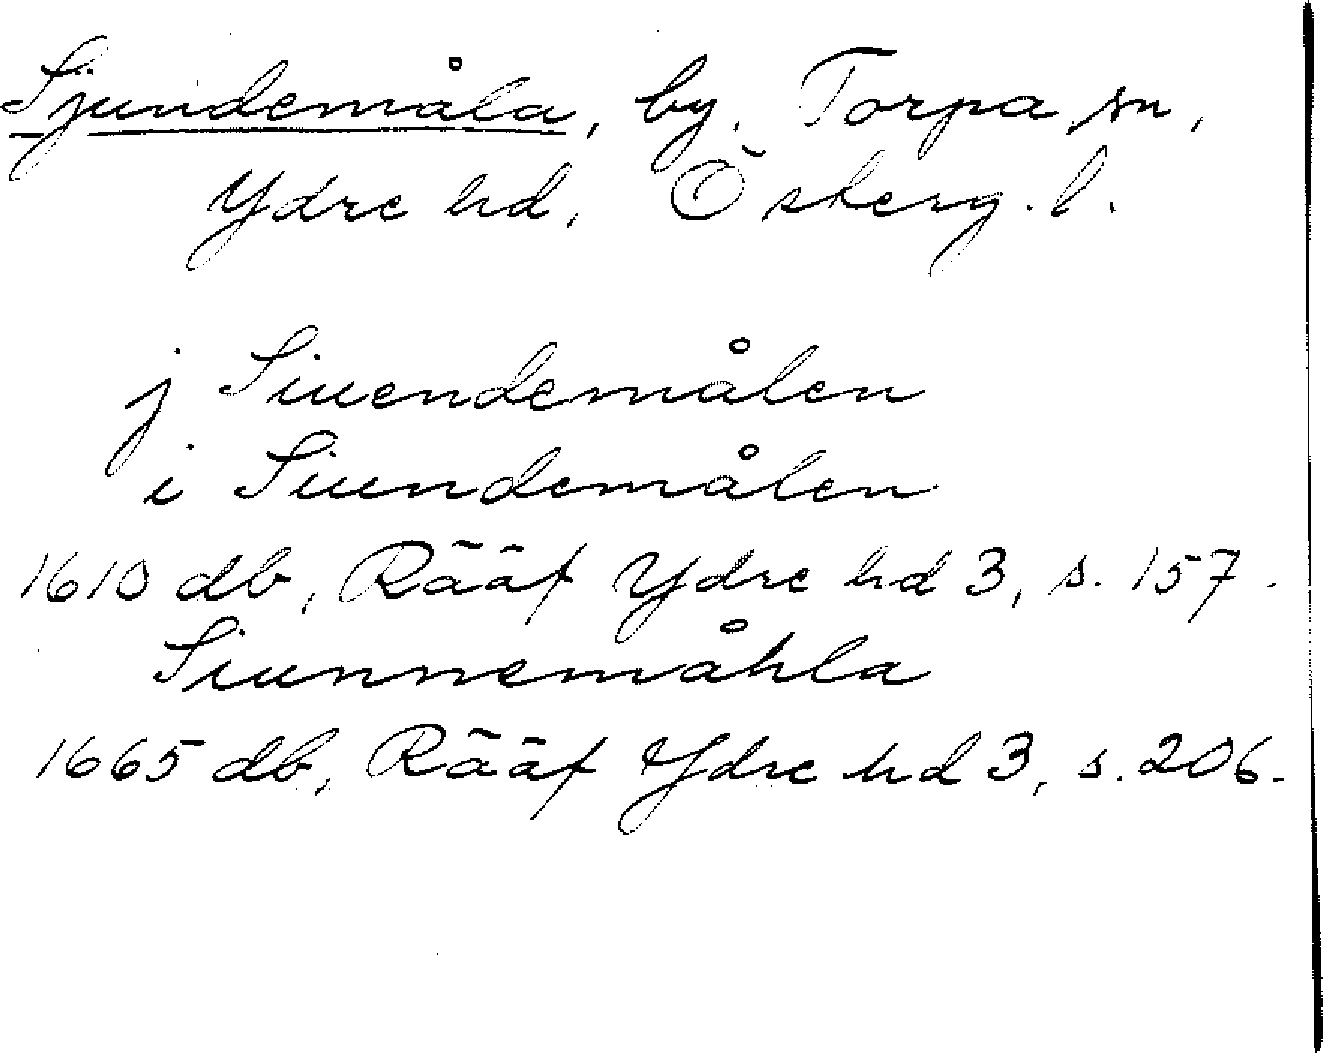 Sjundemåla, by, Torpa sn,
Ydre hd, Österg. l.
j Siuendemålen
i Siundemålen
1610 db, Rääf Ydre hd 3, s. 157.
Siunnemåhla
1665 db, Rääf Ydre hd 3, s. 206.